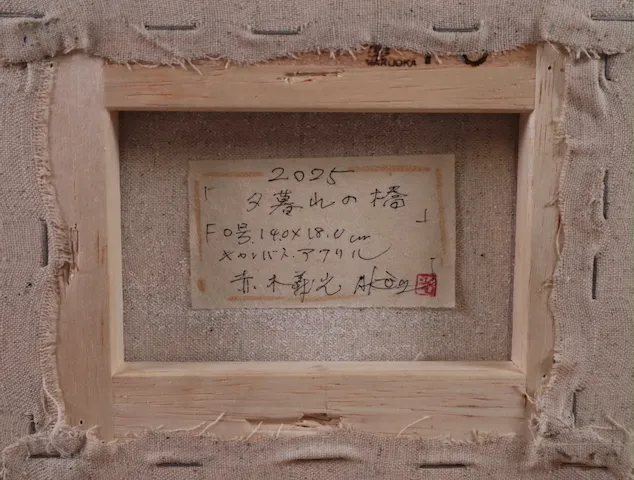 MARUOKA
2025
「夕暮れの橋」
F0号.14.0×18.0cm
キャンバス.アクリル
赤木義光